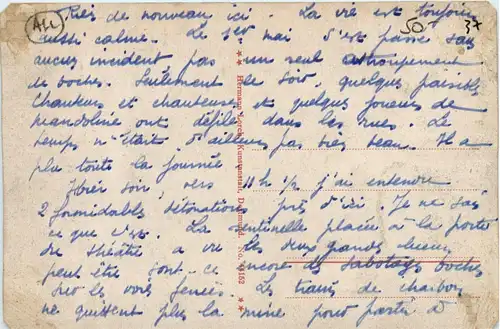 All
50
37
Rien de nouveau ici. La vie est toujours
aussi calme. Le 1er mai s'est passé sans
aucun incident, pas un seul attroupement
de boches. Seulement le soir, quelques paisibles
chanteurs et chanteuses et quelques joueurs de
mandoline ont défilé dans les rues. Le
temps n'était d'ailleurs pas très beau. Il a
plu toute la journée.
Hier soir, vers 11h 1/2 j'ai entendu
2 formidables détonations près d'ici. Je ne sais
ce que c'est. La sentinelle placée à la porte
du théâtre a vu les deux grandes lueurs
peut être sont-ce encore des sabotages boches
sur les voies ferrées. Les trains de charbon
ne quittent plus la mine pour partir à
Hermann Kunstanstalt, Darmstadt. No. 3152